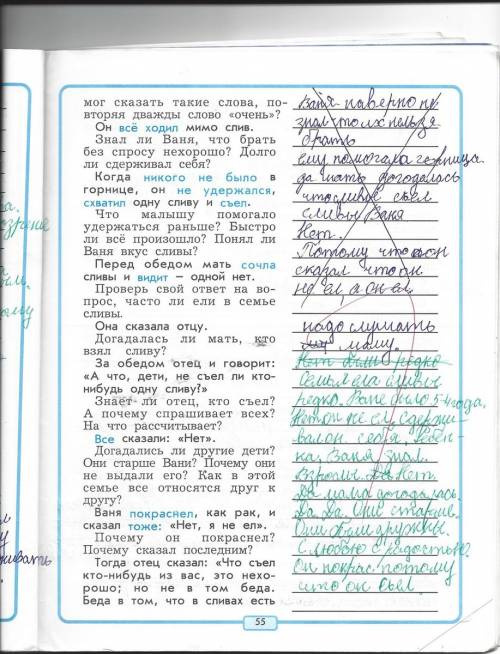 мог сказать такие слова, по-
вторяя дважды слово «очень»?
Он всё ходил мимо слив.
Знал ли Ваня, что брать
без спросу нехорошо? Долго
ли сдерживал себя?
Когда никого не было в
горнице, он не удержался,
схватил одну сливу и съел.
Что малышу помогало
удержаться раньше? Быстро
ли всё произошло? Понял ли
Ваня вкус сливы?
Перед обедом мать сочла
сливы и видит – одной нет.
Проверь свой ответ на во-
прос, часто ли ели в семье
сливы.
Она сказала отцу.
Догадалась ли мать, кто
взял сливу?
За обедом отец и говорит:
«А что, дети, не съел ли кто-
нибудь одну сливу?»
Знает ли отец, кто съел?
А почему спрашивает всех?
На что рассчитывает?
Все сказали: «Нет».
Догадались ли другие дети?
Они старше Вани? Почему они
не выдали его? Как в этой
семье все относятся друг к
другу?
Ваня покраснел, как рак, и
сказал тоже: «Нет, я не ел».
Почему он покраснел?
Почему сказал последним?
Тогда отец сказал: «Что съел
кто-нибудь из вас, это нехо-
рошо; но не в том беда.
Беда в том, что в сливах есть
Ваня наверно не
знал что их нельзя
брать
ему помогала горница.
да мать догодалась
что сливы съел
сливы Ваня
Нет.
Потому что он
сказал что он
не ел, а он ел
надо слушать
маму.
Нет были редко
Семья ела сливы
редко. Ване было 5-4 года.
Нет он не ел, сдержи-
вал он себя. Ребён-
ка, Ваня знал.
Взрослые. Да Нет.
Да мама догодалась.
Да Да. Они старше.
Они были дружны.
С любовю с радостю.
Он покрас потому
что он съел.
55